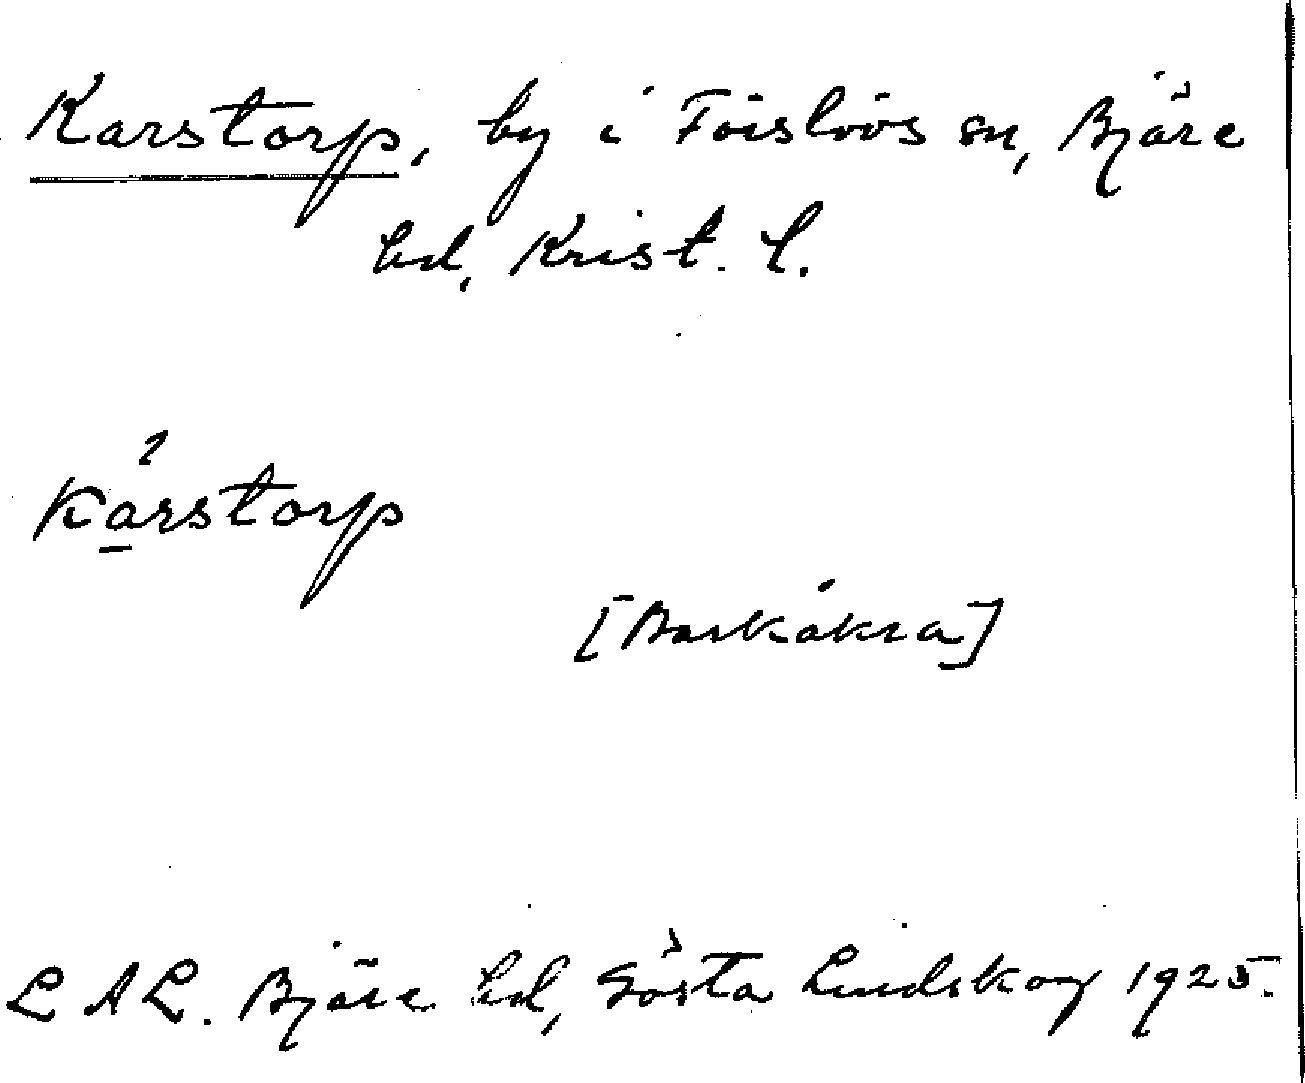 Karstorp, by i Förslövs sn, Bjäre
hd, Krist. l.
Karstorp
[Barkåkra]
L A L. Bjäre hd, Gösta Lindskog 1925.